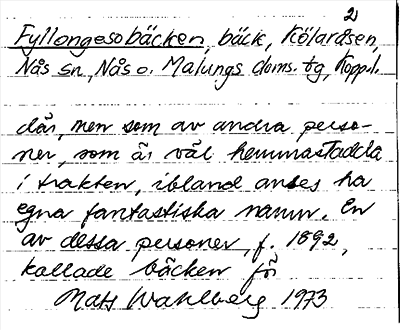 2
Fyllongesobäcken, bäck, Kölaråsen,
Nås sn, Nås o. Malungs doms. tg, Kopp.l.
där, men som av andra perso-
ner, som är väl hemmastadda
i trakten, ibland anses ha
egna fantastiska namn. En
av dessa personer, f. 1892,
kallade bäcken för
Mats Wahlberg 1973